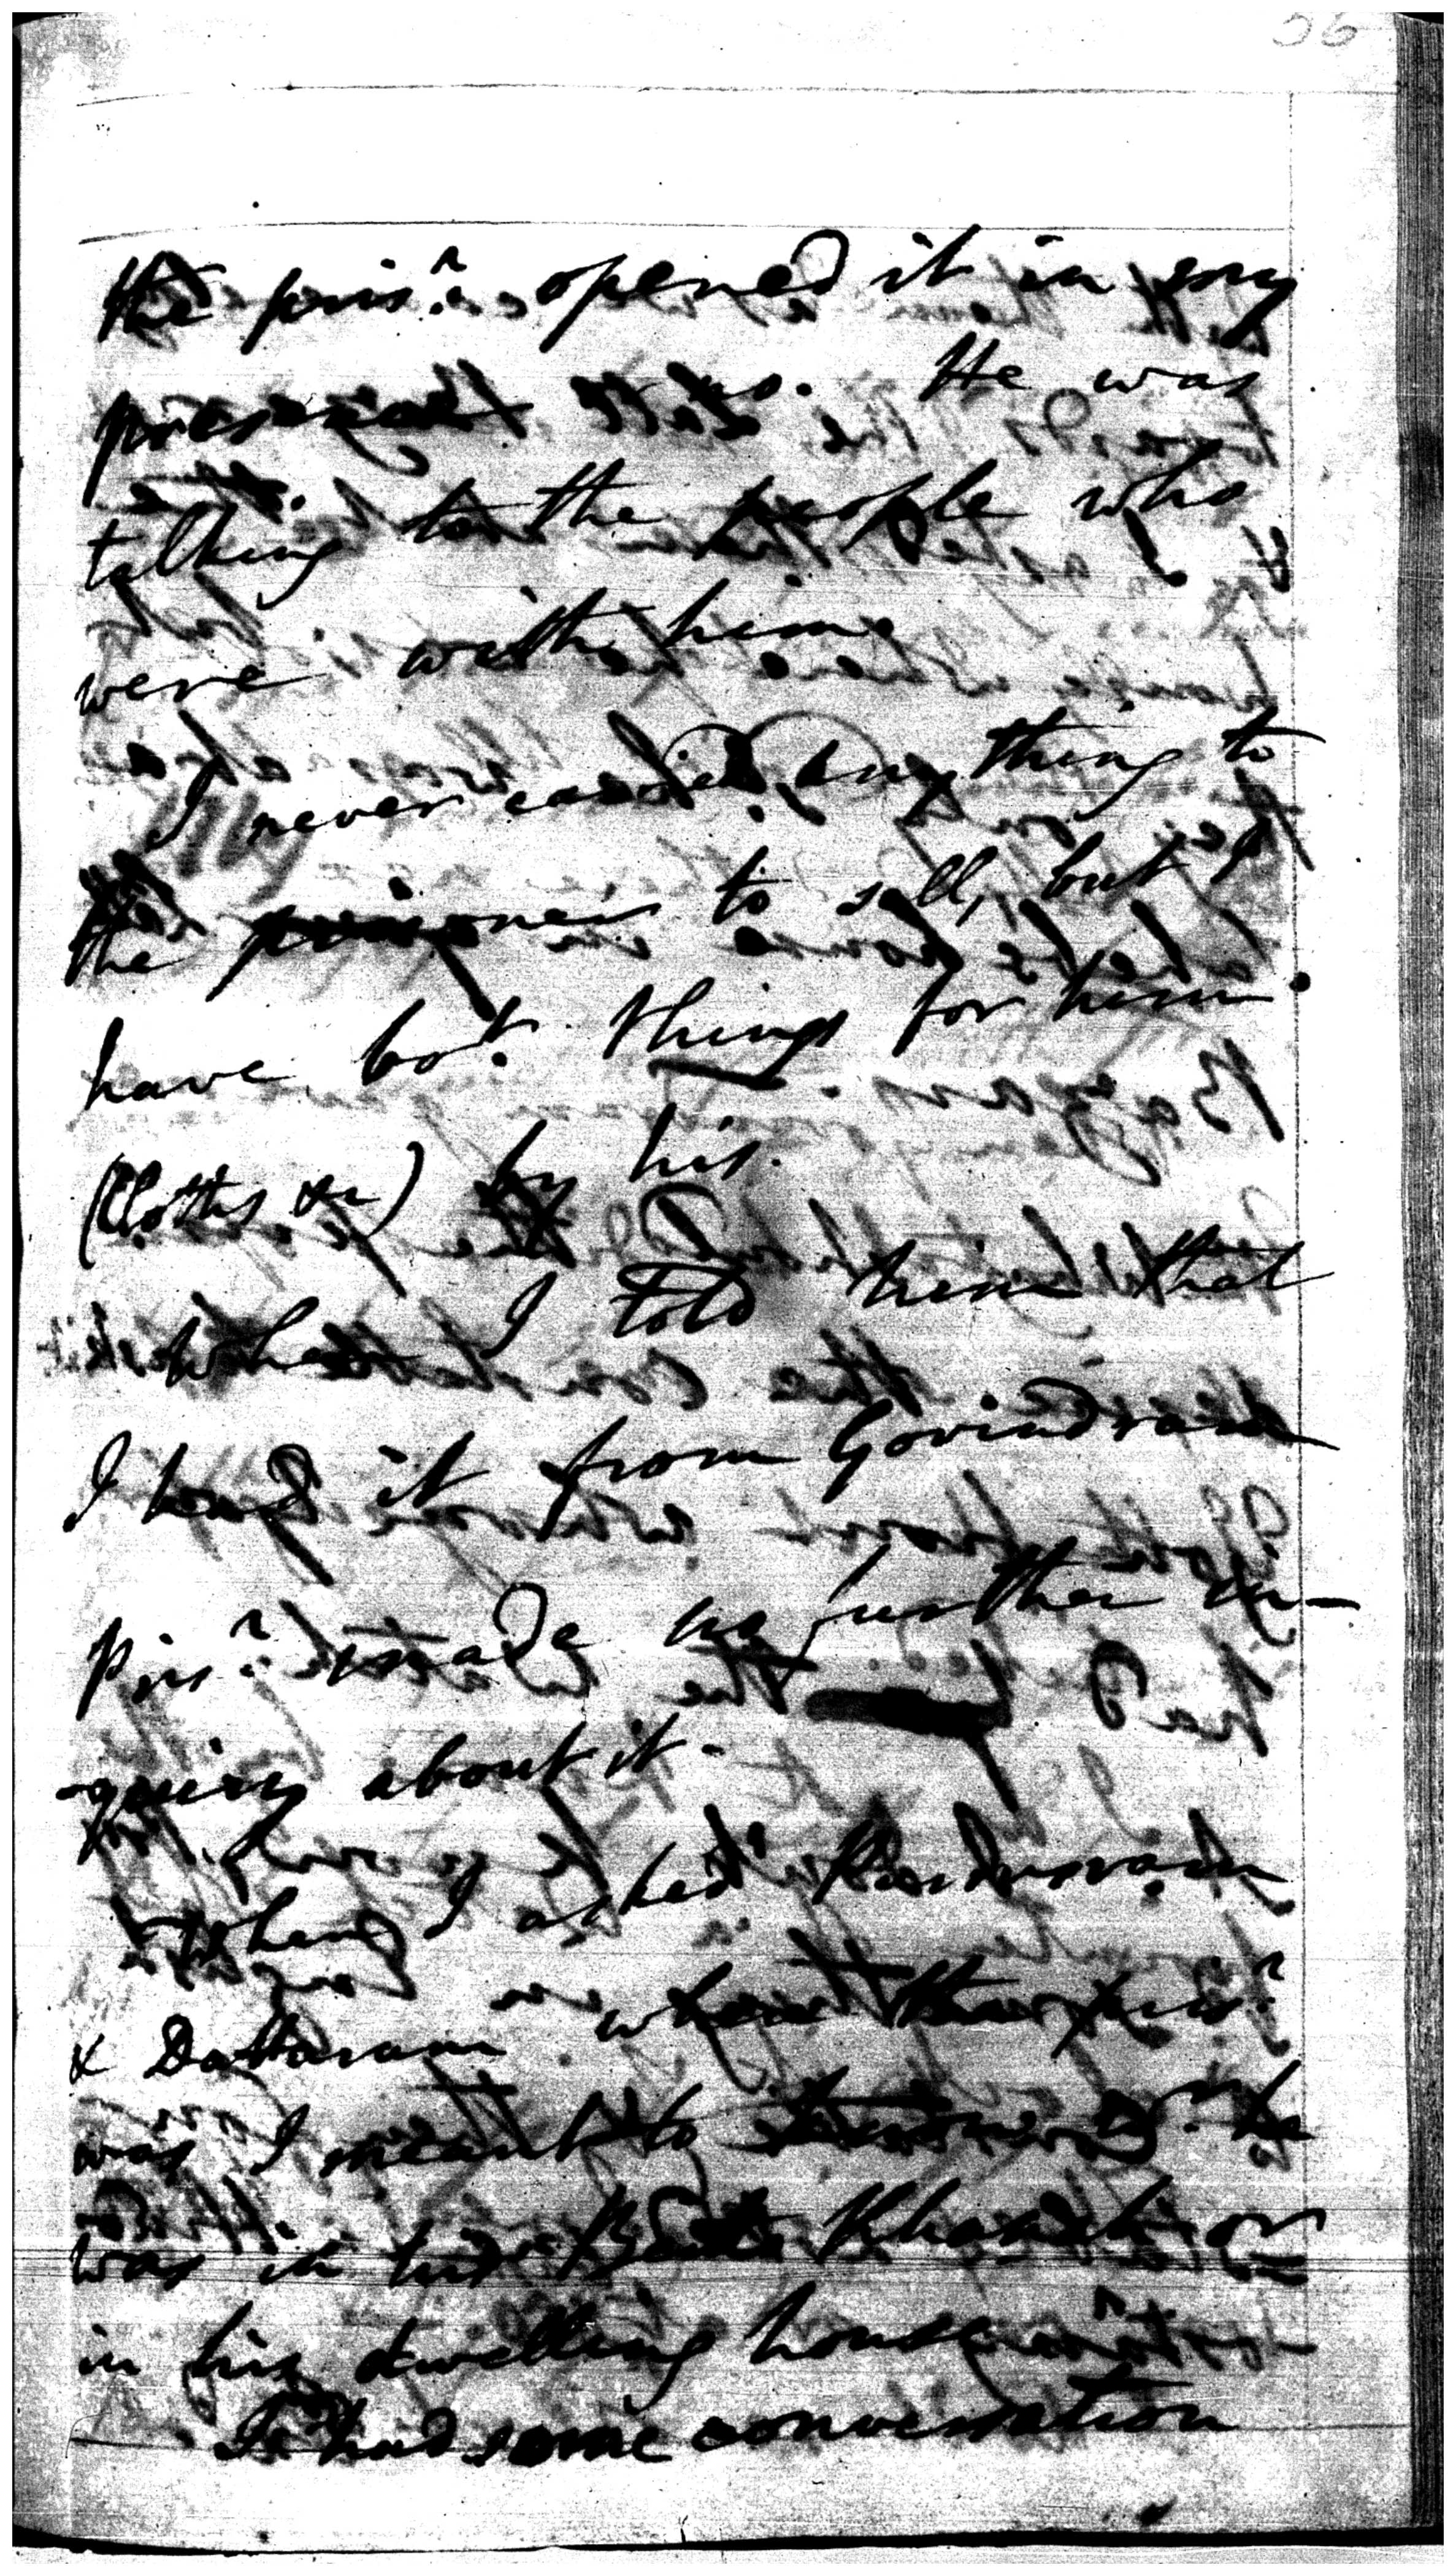 56
the pris.r opened it in my
presence. He was
talking to the people who
were with him.
I never carried any thing to
the prisoner to sell, but I
have bo.t things for him
(Cloths &c) by his
when I told him that
I had it from Govindram
pris.r made no further in-
-quiry about it.
when I asked Pandurang
& Dattaram where the pris.r
was I meant to he
was in his Khanah or
in his dwelling house
I had some conversation